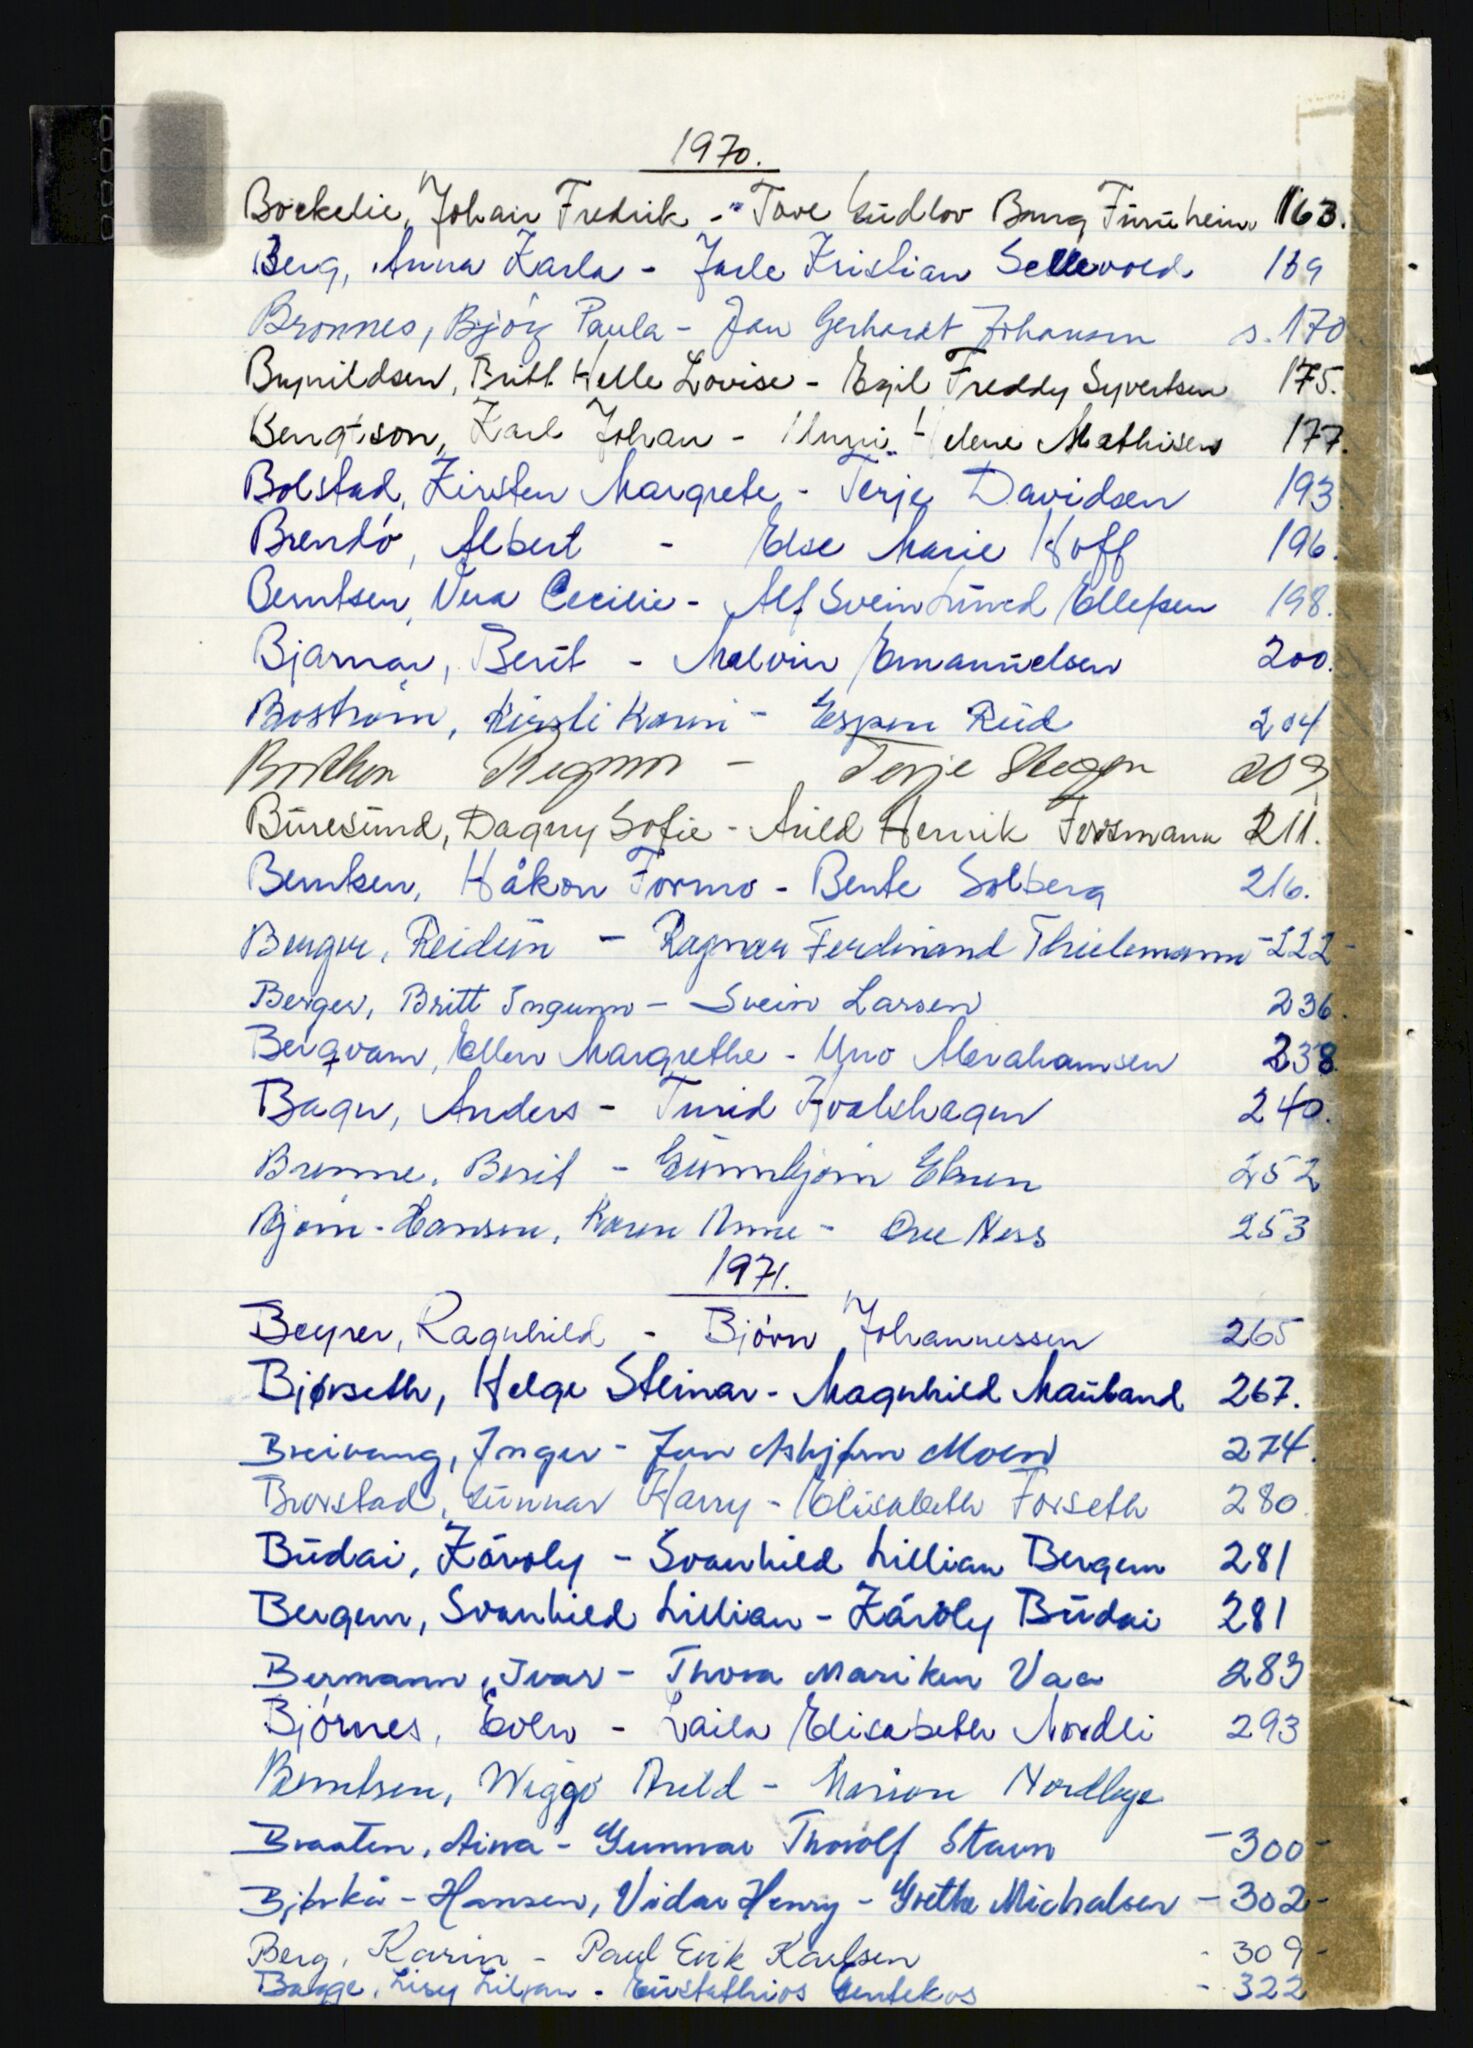 1970.
Boekelie, Johan Fredrik - Tove Gudlov Furuheim 163.
Berg, Anna Karla - Jarle Kristian Sellevold 169
Bronnes, Bjørg Paula - Jan Gerhardt Johansen s. 170
Brynildsen, Britt Helle Lovise - Egil Freddy Syvertsen 175.
Bengtson, Karl Johan - Unni Helene Mathisen 177.
Bolstad, Kirsten Margrete - Terje Davidsen 193.
Brendø, Albert - Else Marie Hoff 196.
Berntsen, Vera Cecilie - Alf Svein Ellefsen 198.
Bjarnar, Berit - Malvin Emanuelsen 200.
Bostrøm, Kirsti Karin - Espen Rud 204
Ragnar - Terje 209
Buresund, Dagny Sofie - Arild Henrik Forsmann 211.
Berntsen, Håkon Formo - Bente Solberg 216.
Berger, Reidun - Ragnar Ferdinand Thielemann - 222 -
Berger, Britt Ingunn - Svein Larsen 236.
Bergvam, Ellen Margrethe - Uno Abrahamsen 238.
Bager, Anders - Turid Hvalshagen 240.
Brenne, Berit - Gunnbjørn Elsnen 252
Bjørn-Hansen, Karen Anne - Ove Ness 253
1971.
Beyrer, Ragnhild - Bjørn Johannessen 265
Bjørseth, Helge Steinar - Magnhild Mauland 267.
Breivang, Inger - Jan Asbjørn Moen 274.
Brovstad, Gunnar Harry - Elisabeth Forseth 280.
Budai, Károly - Svanhild Lillian Bergem 281
Bergem, Svanhild Lillian - Károly Budai 281
Bermann, Ivar - Thora Mariken Vaa 283
Bjørnes, Even - Laila Elisabeth Nordli 293
Berntsen, Wiggo Arild - Marion Nordhage
Braaten, Aina - Gunnar Thorolf Stavn - 300 -
Bjerkå-Hansen, Vidar Henry - Grethe Michalsen - 302 -
Berg, Karin - Paul Erik Karlsen - 309 -
Bagge, Lisy Liljan - Eustathios Gentekos - 322